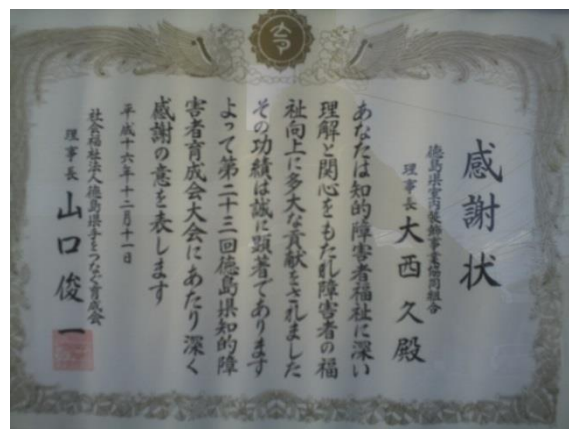 感謝状
徳島県室内装飾事業協同組合
理事長 大西久殿
あなたは知的障害者福祉に深い
理解と関心をもたれ障害者の福
祉向上に多大な貢献をされました
その功績は誠に顕著であります
よって第二十三回徳島県知的障
害者育成会大会にあたり深く
感謝の意を表します
平成十六年十二月十一日
社会福祉法人徳島県手をつなぐ育成会
理事長 山口俊一